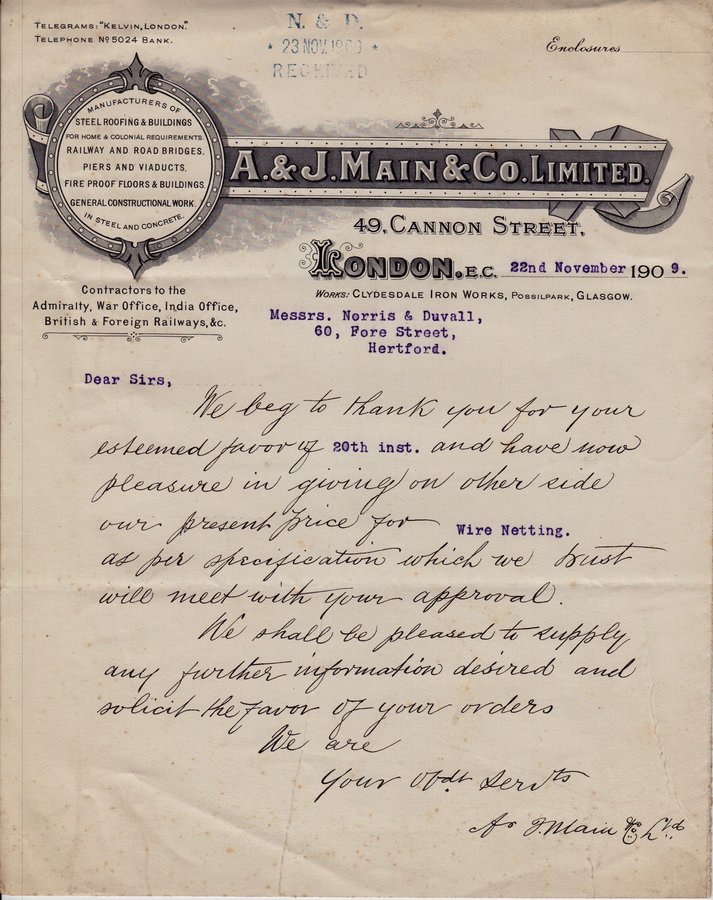 TELEGRAMS: "KELVIN, LONDON."
TELEPHONE No 5024 BANK.
N. & D.
* 23 NOV. 1909 *
RECEIVED
Enclosures
MANUFACTURERS OF
STEEL ROOFING & BUILDINGS
FOR HOME & COLONIAL REQUIREMENTS.
RAILWAY AND ROAD BRIDGES.
PIERS AND VIADUCTS.
FIRE PROOF FLOORS & BUILDINGS.
GENERAL CONSTRUCTIONAL WORK.
IN STEEL AND CONCRETE.
A. & J. MAIN & CO. LIMITED.
49, CANNON STREET,
LONDON, E.C. 22nd November 1909.
WORKS: CLYDESDALE IRON WORKS, POSSILPARK, GLASGOW.
Contractors to the
Admiralty, War Office, India Office,
British & Foreign Railways, &c.
Messrs. Norris & Duvall,
60, Fore Street,
Hertford.
Dear Sirs,
We beg to thank you for your
esteemed favor of 20th inst. and have now
pleasure in giving on other side
our present price for Wire Netting.
as per specification which we trust
will meet with your approval.
We shall be pleased to supply
any further information desired and
solicit the favor of your orders
We are
Your Obdt. Servts
A & J. Main & Co Ltd